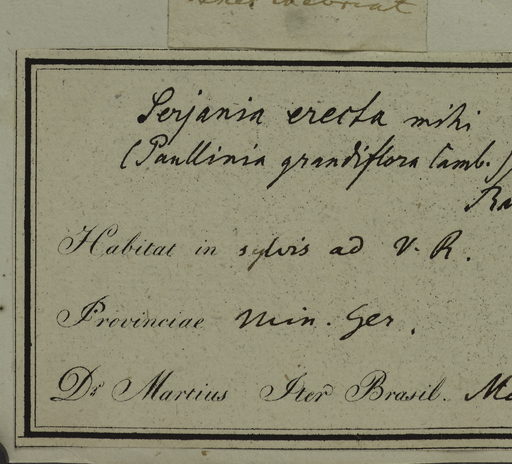 inebriat
Serjania erecta mihi
(Paullinia grandiflora Camb.)
Habitat in sylvis ad V. R.
Provinciae Min. Ger.
Dr Martius Iter Brasil.